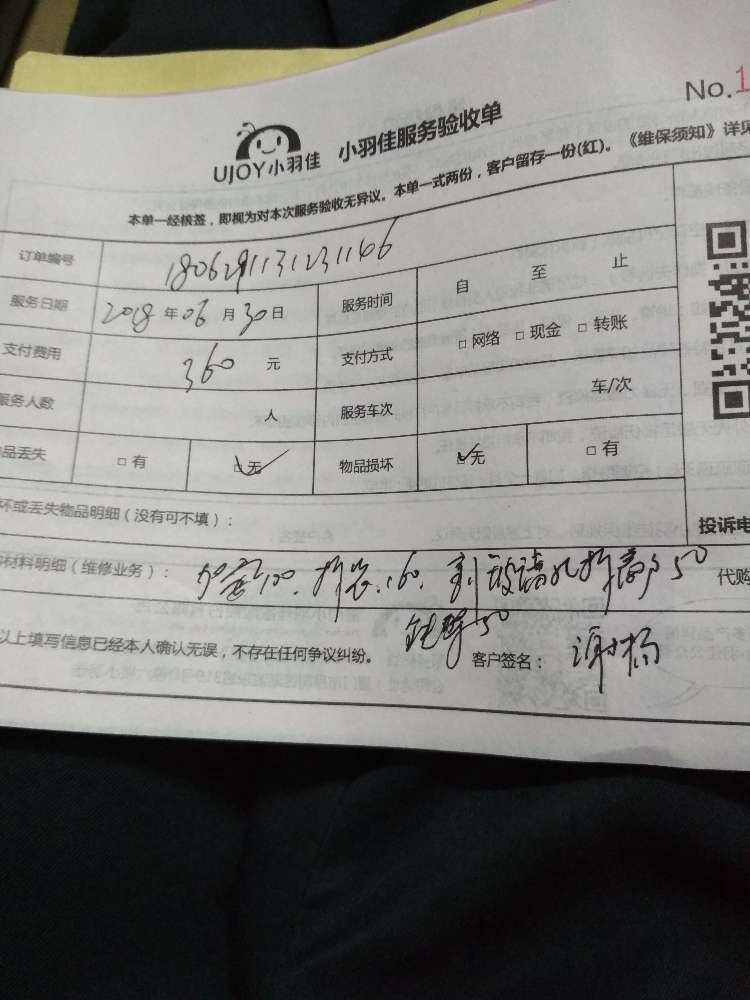 No.1
UJOY小羽佳 小羽佳服务验收单
本单一经核签，即视为对本次服务验收无异议。本单一式两份，客户留存一份(红)。《维保须知》详见
订单编号 1806291131231166
服务日期 2018年06月30日 服务时间 自 至 止
支付费用 360 元 支付方式 □网络 □现金 □转账
服务人数 人 服务车次 车/次
品丢失 □有 □无 物品损坏 □无 □有
坏或丢失物品明细（没有可不填）： 投诉电
材料明细（维修业务）： 100、拆装160、 50 代购
50
以上填写信息已经本人确认无误，不存在任何争议纠纷。 客户签名：